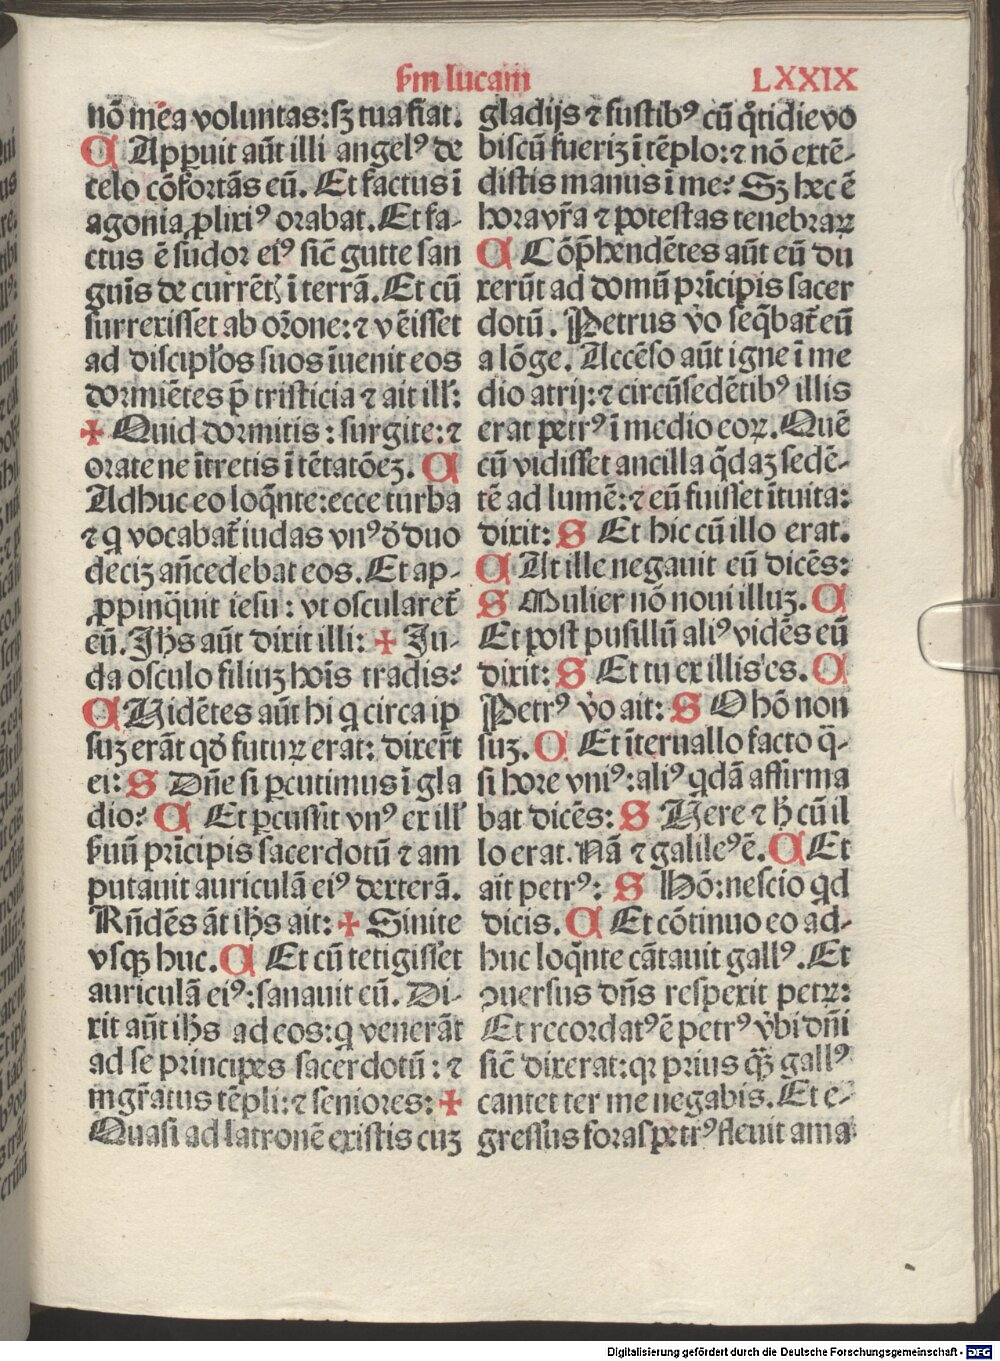 ẜm lucam
LXXIX
nō mēa voluntas: sꝫ tua fiat.
C Appuit aūt illi angelꝰ de
celo cōfortās eū. Et factus ī
agonia ꝓlixiꝰ orabat. Et fa-
ctus ē sudor eiꝰ sic̄ gutte san
guīs de currētꝭ ī terrā. Et cū
surrexisset ab or̄one: ⁊ vēisset
ad discipl̄os suos īuenit eos
dormiētes p̄ tristicia ⁊ ait ill̓:
✠ Quid dormitis: surgite: ⁊
orate ne ītretis ī tētatōeꝫ. C
Adhuc eo loq̄nte: ecce turba
⁊ q vocabat̄ iudas vnꝰ ð duo
deciꝫ an̄cedebat eos. Et ap-
ꝓpinq̄uit iesu: vt oscularet̄
eū. Ihs̄ aūt dixit illi: ✠ Iu-
da osculo filiuꝫ hoīs tradis:
C Uidētes aūt hi q circa ip
suꝫ erāt qð futuꝝ erat: dixer̄t
ei: S Dn̄e si ꝑcutimus ī gla
dio: C Et ꝑcussit vnꝰ ex ill̓
ẜuū prīcipis sacerdotū ⁊ am
putauit auriculā eiꝰ dexterā.
Rn̄dēs āt ihs̄ ait: ✠ Sinite
vsqꝫ huc. C Et cū tetigisset
auriculā eiꝰ: sanauit eū. Di-
xit aūt ihs̄ ad eos: q venerāt
ad se principes sacerdotū: ⁊
mgr̄atus tēpli: ⁊ seniores: ✠
Quasi ad latronē existis cuꝫ
gladijs ⁊ fustibꝰ cū q̄tidie vo
biscū fueriꝫ ī tēplo: ⁊ nō extē-
distis manus ī me: Sꝫ hec ē
hora vr̄a ⁊ potestas tenebraꝝ
C Cōp̄hendētes aūt eū du
xerūt ad domū prīcipis sacer
dotū. Petrus v̓o seq̄bat̄ eū
a lōge. Accēso aūt igne ī me
dio atrij: ⁊ circūsedētibꝰ illis
erat petrꝰ ī medio eoꝝ. Quē
cū vidisset ancilla q̄daꝫ sedē-
tē ad lumē: ⁊ eū fuisset ītuita:
dixit: S Et hic cū illo erat.
C At ille negauit eū dicēs:
S Mulier nō noui illuꝫ. C
Et post pusillū aliꝰ vidēs eū
dixit: S Et tu ex illis es. C
Petrꝰ v̓o ait: S O hō non
suꝫ. C Et īteruallo facto q̄-
si hore vniꝰ: aliꝰ qdā affirma
bat dicēs: S Uere ⁊ h̄ cū il
lo erat. Nā ⁊ galileꝰ ē. C Et
ait petrꝰ: S Hō: nescio qd
dicis. C Et cōtinuo eo ad-
huc loq̄nte cātauit gallꝰ. Et
ꝯuersus dn̄s respexit petꝝ:
Et recordatꝰ ē petrꝰ v̓bi dn̄i
sic̄ dixerat: qꝛ prius qꝫ̄ gallꝰ
cantet ter me negabis. Et e-
gressus foras petrꝰ fleuit ama
Digitalisierung gefördert durch die Deutsche Forschungsgemeinschaft - DFG